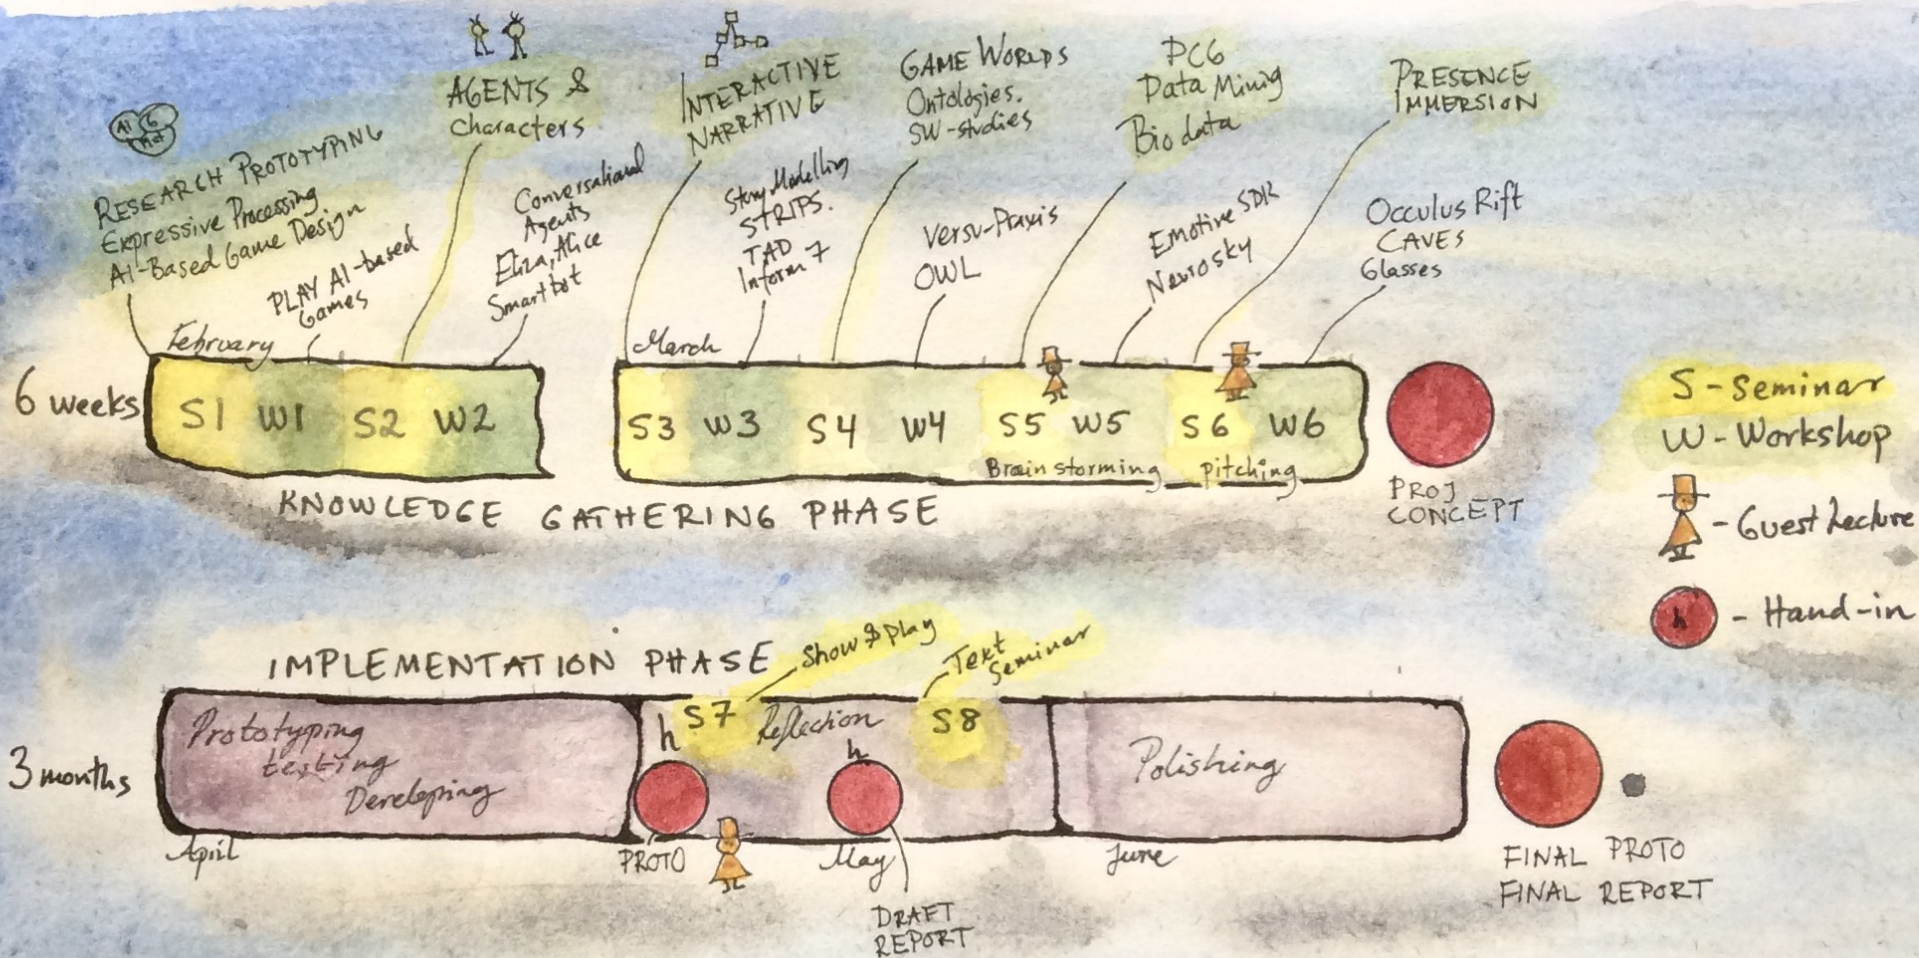 AI G
Met
RESEARCH PROTOTYPING
Expressive Processing
AI-Based Game Design
PLAY AI-based
Games
AGENTS &
Characters
Conversational
Agents
Eliza, Alice
Smartbot
INTERACTIVE
NARRATIVE
Story Modelling
STRIPS.
TAD
Inform 7
GAME WORLDS
Ontologies.
SW-studies
Versu-Praxis
OWL
PCG
Data Minig
Bio data
Emotive SDK
Neurosky
PRESENCE
IMMERSION
Occulus Rift
CAVES
Glasses
February
March
6 weeks
S1 W1 S2 W2
S3 W3 S4 W4 S5 W5 S6 W6
Brainstorming
pitching
KNOWLEDGE GATHERING PHASE
PROJ
CONCEPT
S - Seminar
W - Workshop
- Guest Lecture
h - Hand-in
IMPLEMENTATION PHASE
Show & play
Text
Seminar
3 months
Prototyping
testing
Developing
h S7 Reflection
h
S8
Polishing
April
PROTO
May
June
DRAFT
REPORT
FINAL PROTO
FINAL REPORT